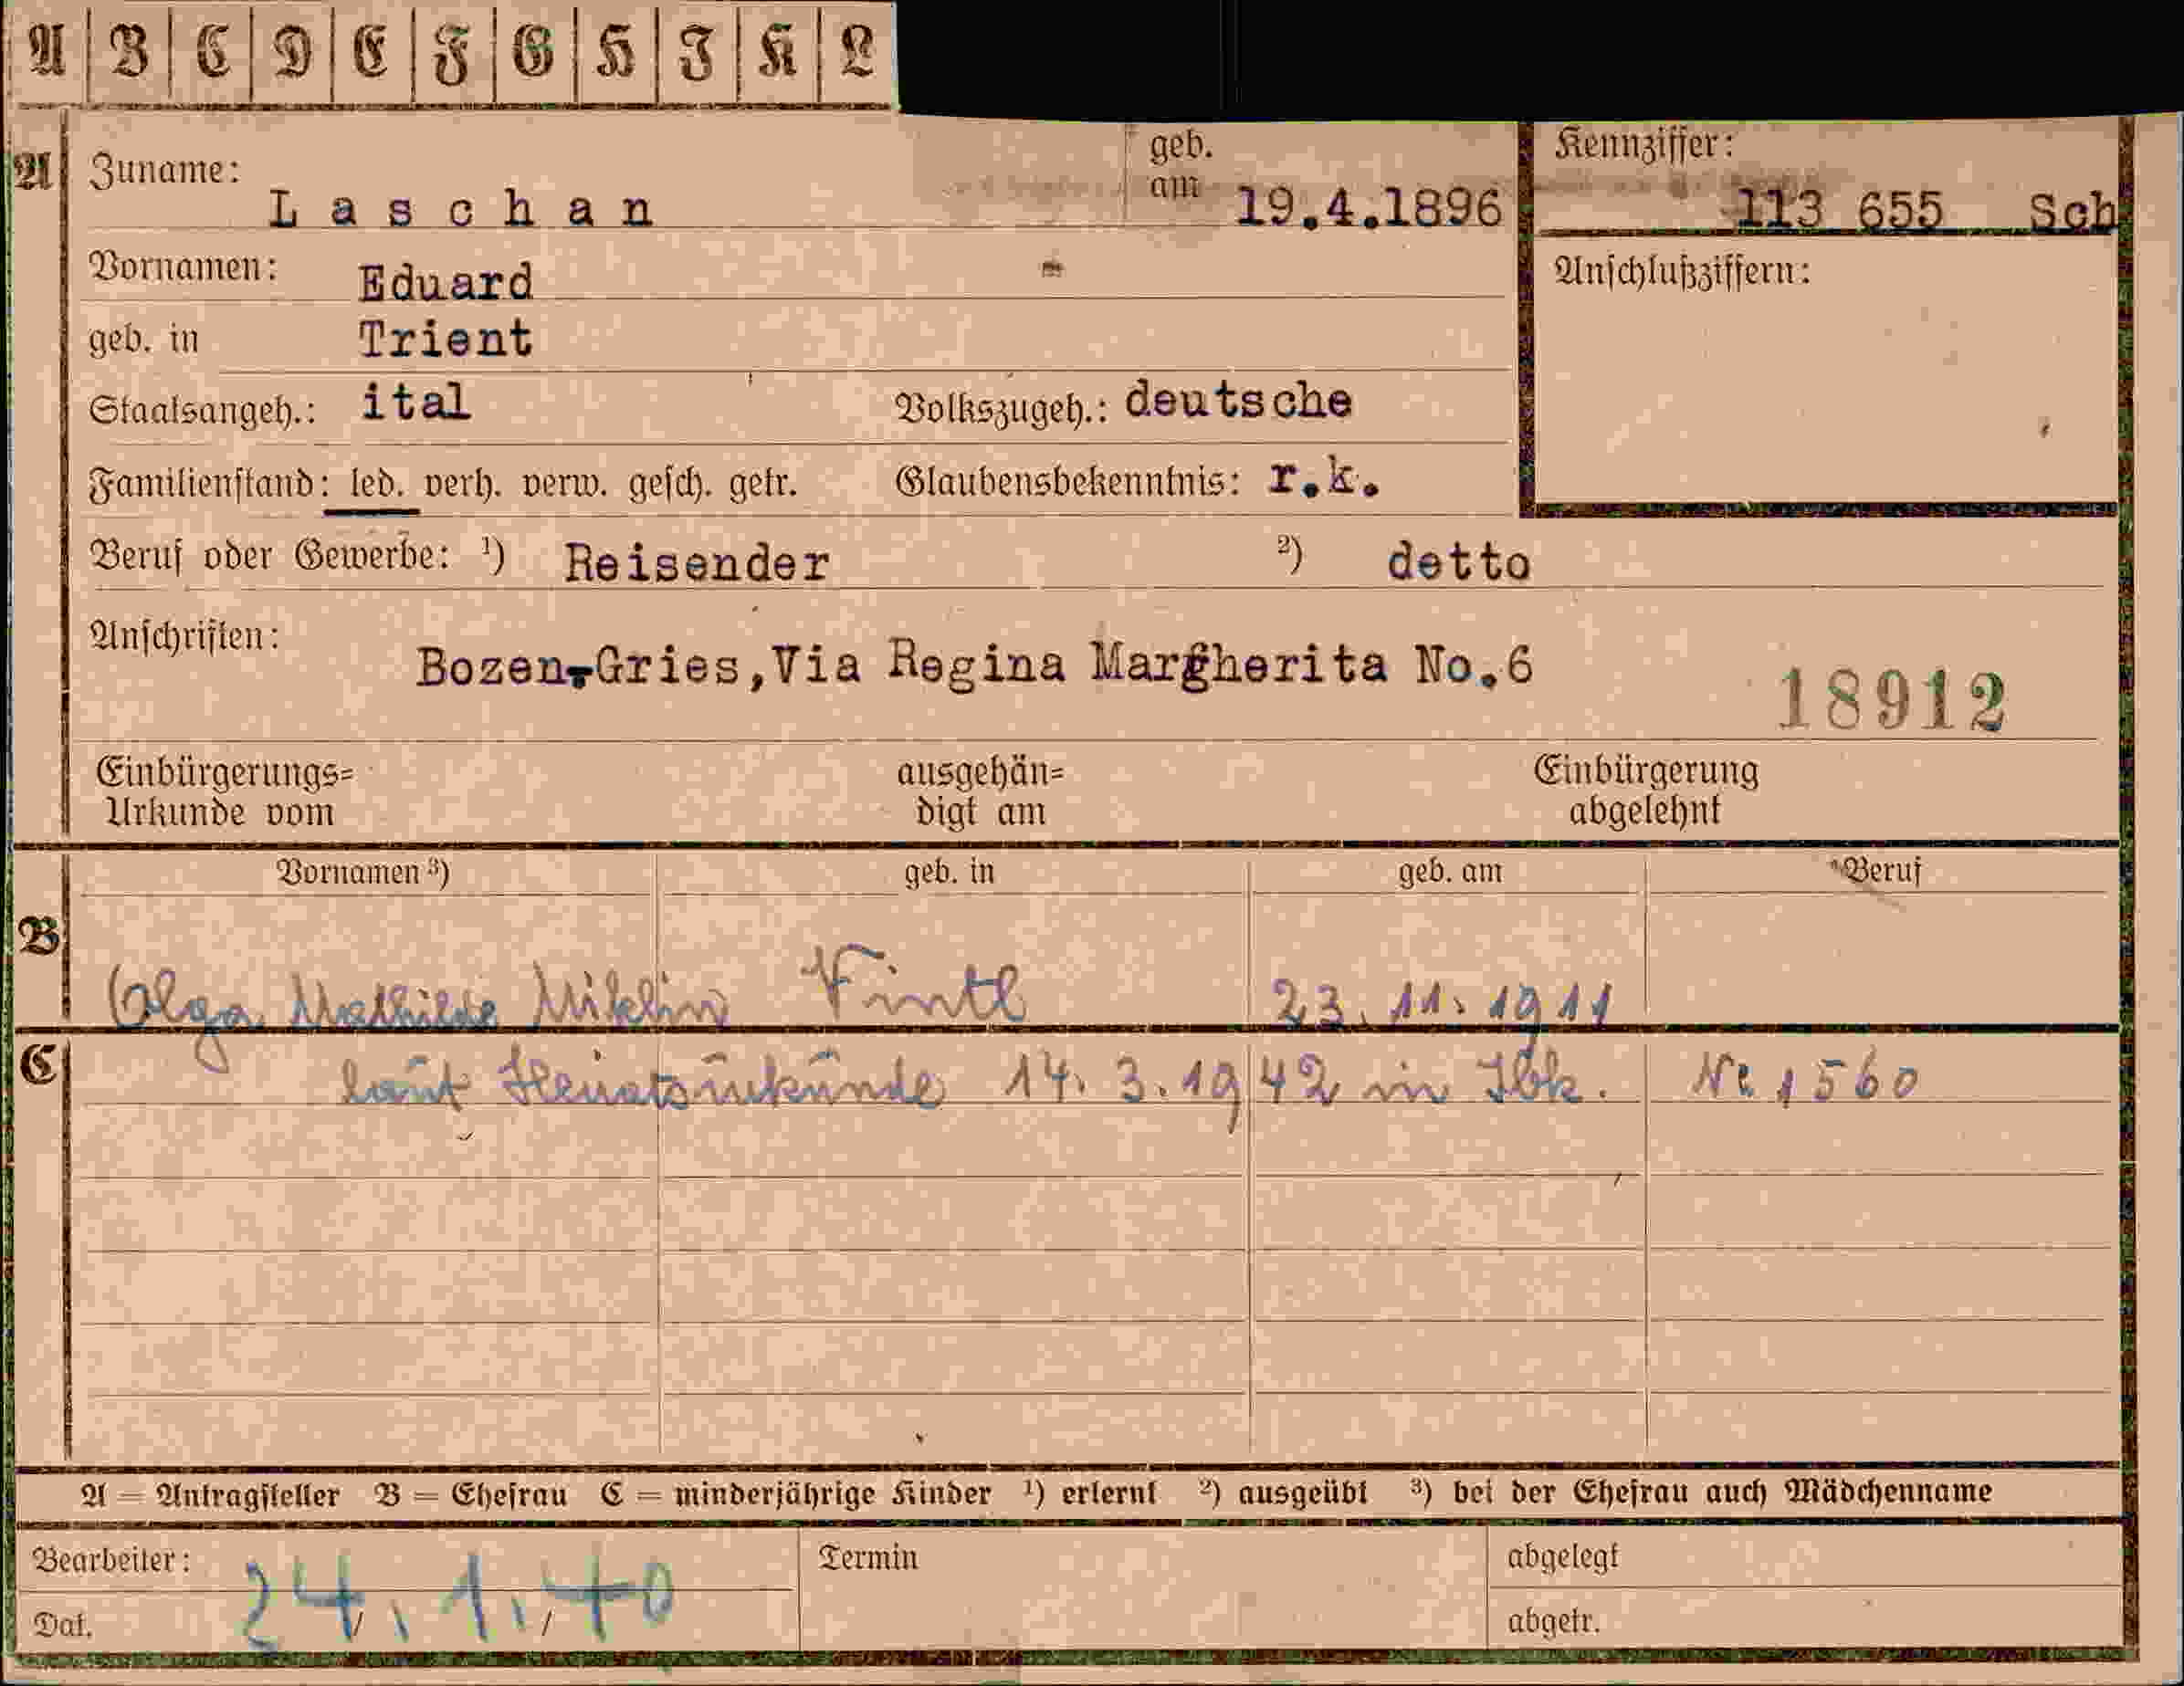 A B C D E F G H J K L
A Zuname: Laschan geb. am 19.4.1896 Kennziffer: 113 655 Sch
Vornamen: Eduard Anschlußziffern:
geb. in Trient
Staatsangeh.: ital Volkszugeh.: deutsche
Familienstand: led. verh. verw. gesch. getr. Glaubensbekenntnis: r.k.
Beruf oder Gewerbe: ¹) Reisender ²) detto
Anschriften: Bozen-Gries,Via Regina Margherita No.6
18912
Einbürgerungs= ausgehän= Einbürgerung
Urkunde vom digt am abgelehnt
Vornamen ³) geb. in geb. am Beruf
B Olga Mathilde Miklin Vintl 23. 11. 1911
C laut Heiratsurkunde 14. 3. 1942 in Ibk. Nr 1560
A = Antragsteller B = Ehefrau C = minderjährige Kinder ¹) erlernt ²) ausgeübt ³) bei der Ehefrau auch Mädchenname
Bearbeiter: Termin abgelegt
Dat. 24.1.40 abgetr.